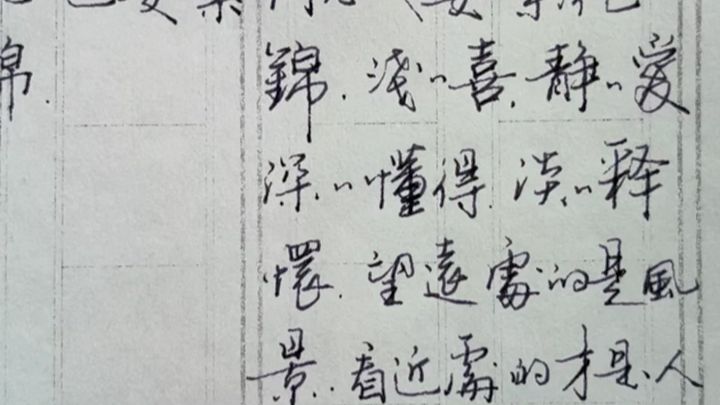 錦.淺〃喜.静〃愛
深〃懂得.淡〃释
懷.望遠處的是風
景.看近處的才是人